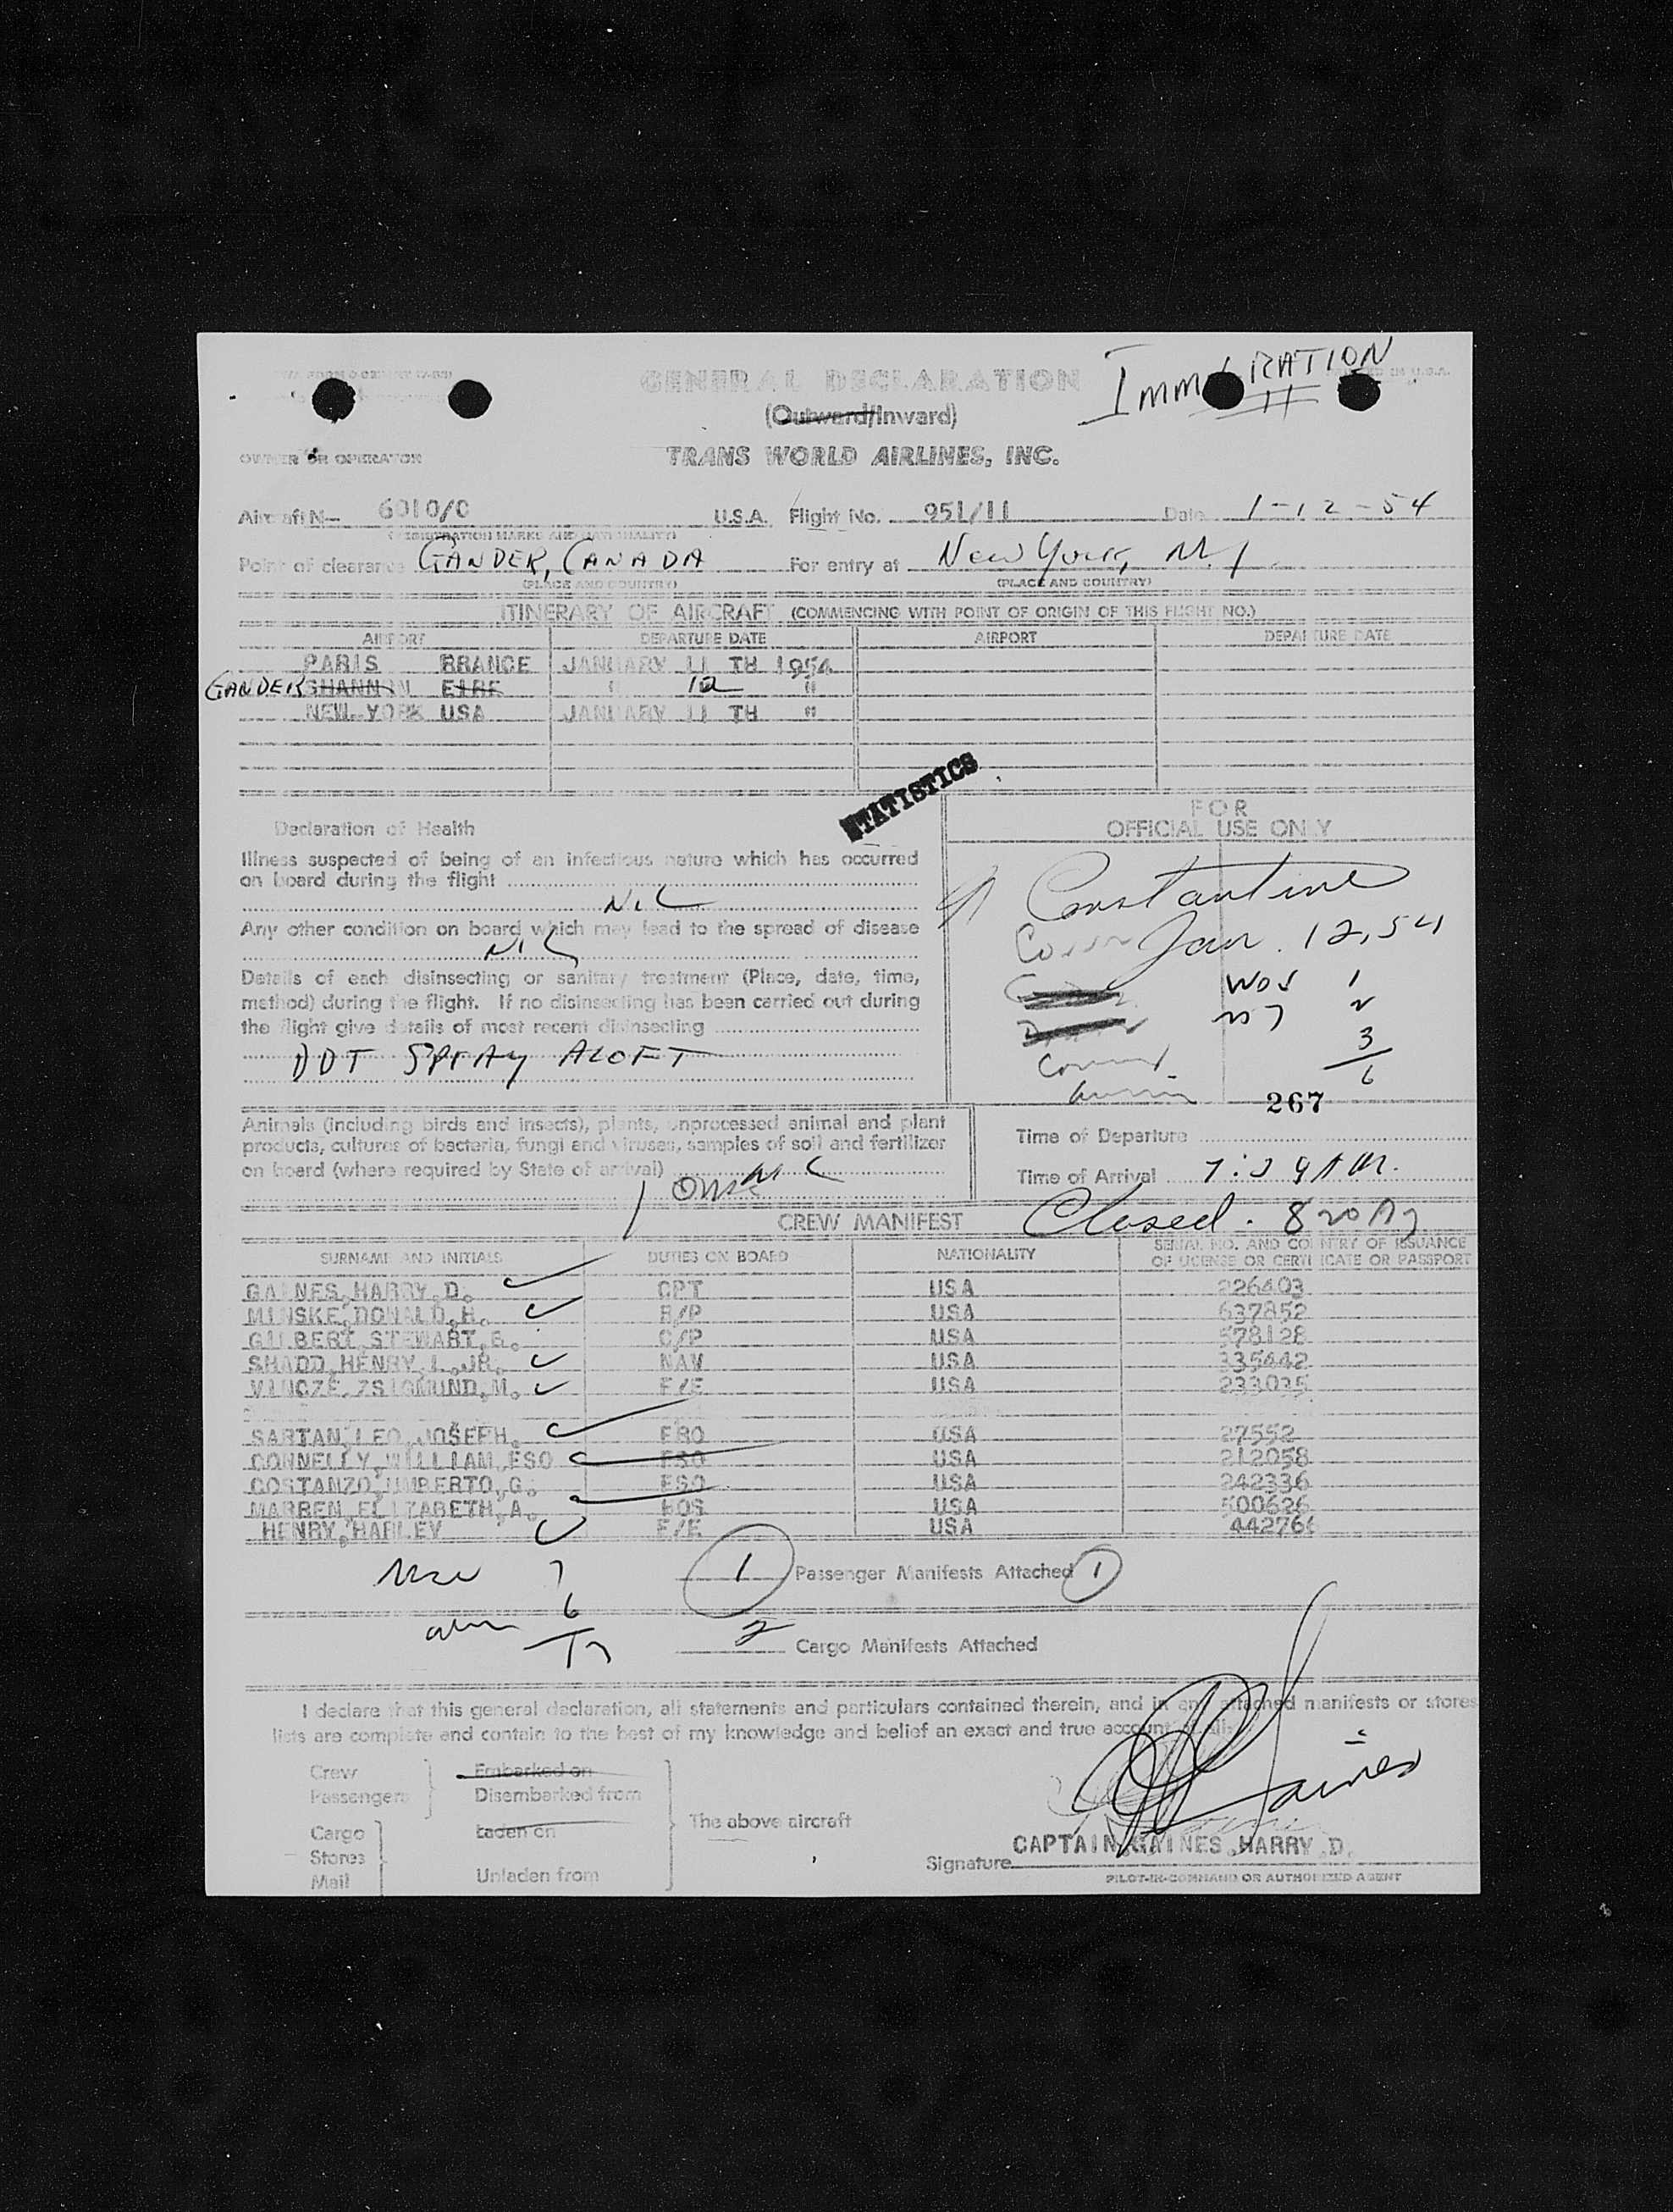 GENERAL DECLARATION
IMMIGRATION
(Outward/Inward)
OWNER OR OPERATOR
TRANS WORLD AIRLINES, INC.
Aircraft N— 6010/C U.S.A. Flight No. 951/11 Date 1-12-54
(REGISTRATION MARKS AND NATIONALITY)
Point of clearance GANDER, CANADA For entry at New York, N.Y.
(PLACE AND COUNTRY) (PLACE AND COUNTRY)
ITINERARY OF AIRCRAFT (COMMENCING WITH POINT OF ORIGIN OF THIS FLIGHT NO.)
AIRPORT DEPARTURE DATE AIRPORT DEPARTURE DATE
PARIS BRANCE JANUARY 11 TH 1954
GANDER SHANNON EIRE " 12 "
NEW YORK USA JANUARY 11 TH "
STATISTICS
FOR
OFFICIAL USE ONLY
Declaration of Health
Illness suspected of being of an infectious nature which has occurred
on board during the flight
NIL
Any other condition on board which may lead to the spread of disease
NIL
Details of each disinsecting or sanitary treatment (Place, date, time,
method) during the flight. If no disinsecting has been carried out during
the flight give details of most recent disinsecting
DDT SPRAY ALOFT
Constantine
Jan. 12, 54
1
3
6
267
Animals (including birds and insects), plants, unprocessed animal and plant
products, cultures of bacteria, fungi and viruses, samples of soil and fertilizer
on board (where required by State of arrival)
Time of Departure
Time of Arrival 7:29 AM.
Closed. 820
CREW MANIFEST
SURNAME AND INITIALS DUTIES ON BOARD NATIONALITY SERIAL NO. AND COUNTRY OF ISSUANCE
OF LICENSE OR CERTIFICATE OR PASSPORT
GAINES,HARRY,D. CPT USA 226403
MINSKE,DONALD,H. R/P USA 637852
GILBERT,STEWART,G. C/P USA 578128
SHADD,HENRY,L.,JR. NAV USA 335442
VINCZE,ZSIGMUND,M. F/E USA 233035
SARTAN,LEO,JOSEPH. FRO USA 27552
CONNELLY,WILLIAM,ESO FSO USA 212058
COSTANZO,UMBERTO,G. FSO USA 242336
MARREN,ELIZABETH,A. HOS USA 500626
HENRY,HARLEY F/E USA 442766
7
6
1 Passenger Manifests Attached 1
2 Cargo Manifests Attached
I declare that this general declaration, all statements and particulars contained therein, and in any attached manifests or stores
lists are complete and contain to the best of my knowledge and belief an exact and true account of all:
Crew Embarked on
Passengers Disembarked from
The above aircraft
Cargo Laden on
Stores
Mail Unladen from
CAPTAIN,GAINES,HARRY,D.
Signature
PILOT-IN-COMMAND OR AUTHORIZED AGENT